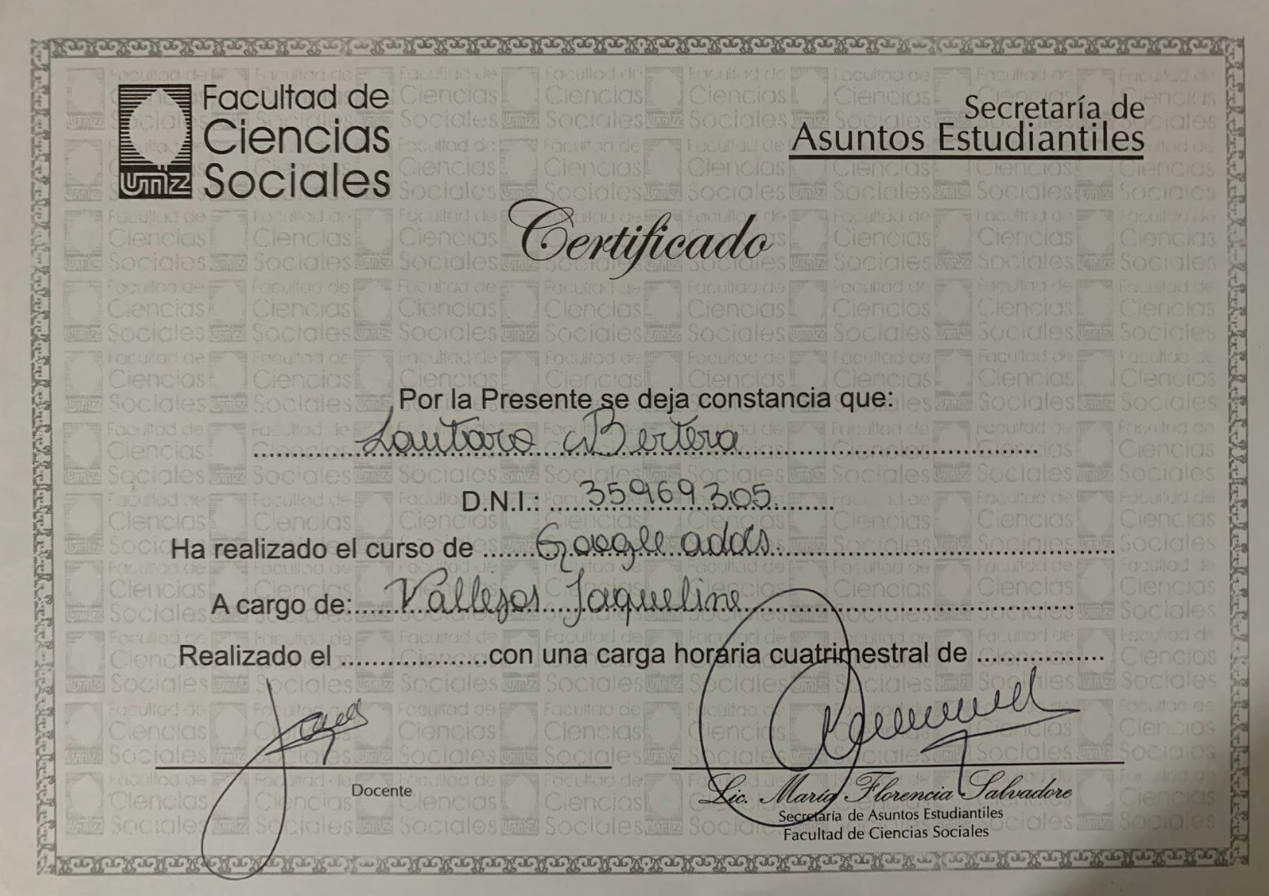 Facultad de
Ciencias
Sociales
UNLZ
Secretaría de
Asuntos Estudiantiles
Certificado
Por la Presente se deja constancia que:
Lautaro Bertera
D.N.I.: 35969305
Ha realizado el curso de Google adds
A cargo de: Vallejos Jaqueline
Realizado el ..................con una carga horaria cuatrimestral de ................
Docente
Lic. María Florencia Salvadore
Secretaría de Asuntos Estudiantiles
Facultad de Ciencias Sociales